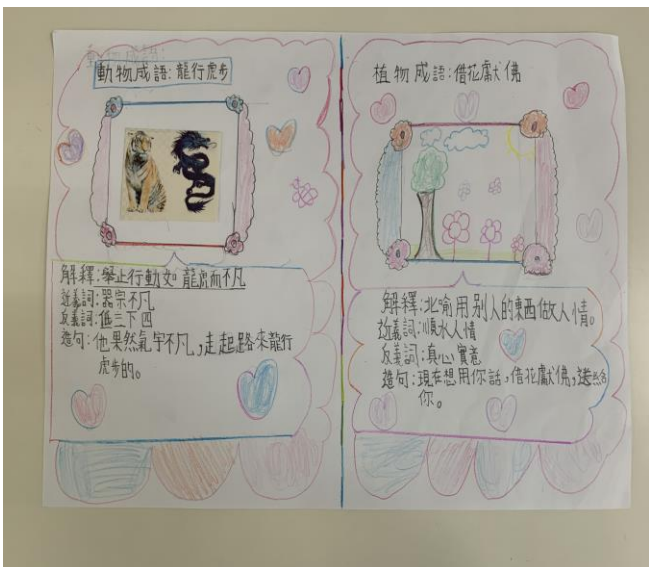 動物成語:
動物成語:龍行虎步
解釋:舉止行動如龍虎而不凡
近義詞:器宗不凡
反義詞:低三下四
造句:他果然氣宇不凡,走起路來龍行
虎步的。
植物成語:借花獻佛
解釋:比喻用別人的東西做人情。
近義詞:順水人情
反義詞:真心實意
造句:現在想用你話,借花獻佛,送給
你。